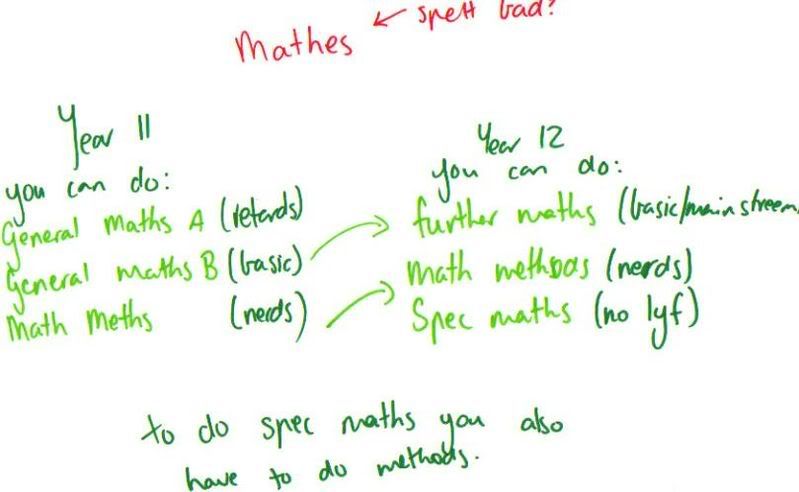 Mathes ← spell bad?
Year 11
you can do:
General Maths A (retards)
General maths B (basic)
Math Meths (nerds)
Year 12
you can do:
further maths (basic/mainstreem
math methods (nerds)
Spec maths (no lyf)
to do spec maths you also
have to do methods.